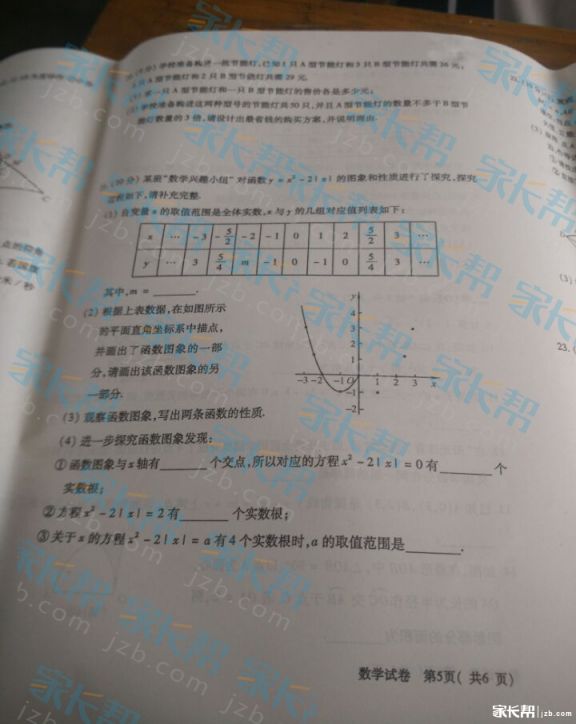 (9分)学校准备购进一批节能灯,已知1只A型节能灯和3只B型节能灯共需26元;
3只A型节能灯和2只B型节能灯共需29元.
(1)求一只A型节能灯和一只B型节能灯的售价各是多少元;
(2)学校准备购进这两种型号的节能灯共50只,并且A型节能灯的数量不多于B型节
能灯数量的3倍,请设计出最省钱的购买方案,并说明理由.
(10分)某班“数学兴趣小组”对函数y=x²-2|x|的图象和性质进行了探究,探究
过程如下,请补充完整.
(1)自变量x的取值范围是全体实数,x与y的几组对应值列表如下:
x … -3 -5/2 -2 -1 0 1 2 5/2 3 …
y … 3 5/4 m -1 0 -1 0 5/4 3 …
其中,m=______.
(2)根据上表数据,在如图所示
的平面直角坐标系中描点,
并画出了函数图象的一部
分,请画出该函数图象的另
一部分.
y
4
3
2
1
-3 -2 -1 O 1 2 3 x
-1
-2
(3)观察函数图象,写出两条函数的性质.
(4)进一步探究函数图象发现:
①函数图象与x轴有______个交点,所以对应的方程x²-2|x|=0有______个
实数根;
②方程x²-2|x|=2有______个实数根;
③关于x的方程x²-2|x|=a有4个实数根时,a的取值范围是______.
数学试卷 第5页(共6页)
家长帮 jzb.com